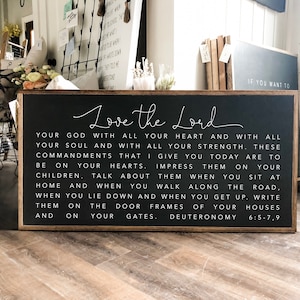 Love the Lord
YOUR GOD WITH ALL YOUR HEART AND WITH ALL
YOUR SOUL AND WITH ALL YOUR STRENGTH. THESE
COMMANDMENTS THAT I GIVE YOU TODAY ARE TO
BE ON YOUR HEARTS. IMPRESS THEM ON YOUR
CHILDREN. TALK ABOUT THEM WHEN YOU SIT AT
HOME AND WHEN YOU WALK ALONG THE ROAD,
WHEN YOU LIE DOWN AND WHEN YOU GET UP. WRITE
THEM ON THE DOOR FRAMES OF YOUR HOUSES
AND ON YOUR GATES. DEUTERONOMY 6:5-7,9
IF YOU WANT TO